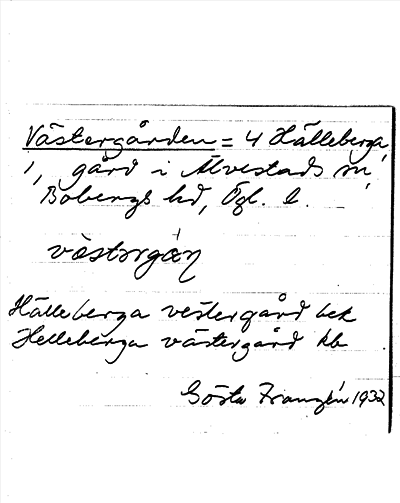 Västergården = 4 Hälleberga,
1, gård i Älvestads sn,
Bobergs hd, Ögl. l.
västərgán
Hälleberga vestergård bek
Helleberga västergård kb
Gösta Franzén 1932